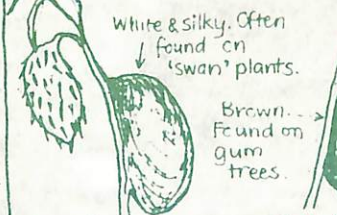 White & silky. Often
found on
'swan' plants.
Brown...
Found on
gum
trees.